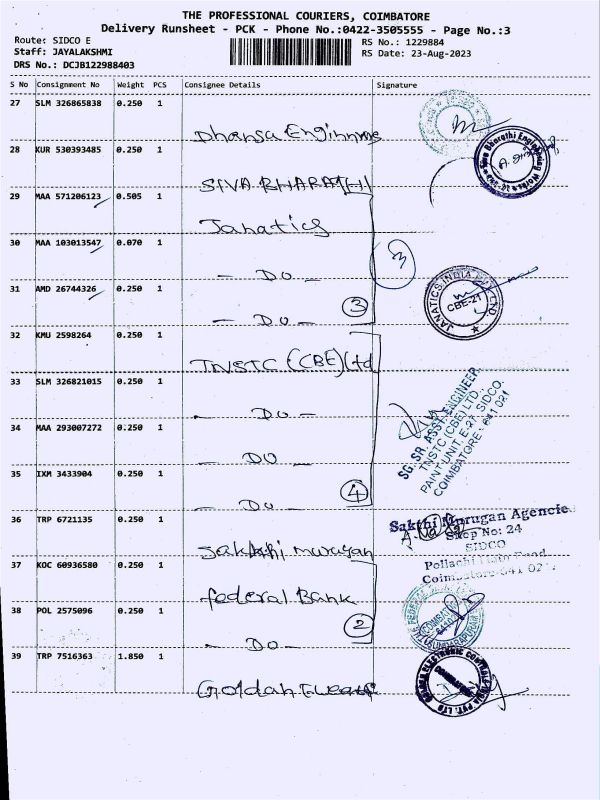 THE PROFESSIONAL COURIERS, COIMBATORE
Delivery Runsheet - PCK - Phone No.:0422-3505555 - Page No.:3
Route: SIDCO E
Staff: JAYALAKSHMI
DRS No.: DCJB122988403
RS No.: 1229884
RS Date: 23-Aug-2023
S No Consignment No Weight PCS Consignee Details Signature
27 SLM 326865838 0.250 1
Dhansa Enginnring
28 KUR 530393485 0.250 1
SIVA BHARATHI
Siva Bharathi Engineering Works
29 MAA 571206123 0.505 1
Janatics
30 MAA 103013547 0.070 1
- Do -
3
31 AMD 26744326 0.250 1
- Do -
3
JANATICS INDIA PVT LTD
CBE-21
32 KMU 2598264 0.250 1
TNSTC (CBE) Ltd
33 SLM 326821015 0.250 1
- Do -
SG. SR. ASST. ENGINEER
TNSTC (CBE) LTD.
PAINT UNIT, E.27, SIDCO.
COIMBATORE - 641 021
34 MAA 293007272 0.250 1
- DO -
35 IXM 3433904 0.250 1
- Do -
4
36 TRP 6721135 0.250 1
Sakthi murugan
Sakthi Murugan Agencies
Shop No: 24
SIDCO
Pollachi Main Road
Coimbatore-641 021
37 KOC 60936580 0.250 1
federal Bank
38 POL 2575096 0.250 1
- Do -
2
39 TRP 7516363 1.850 1